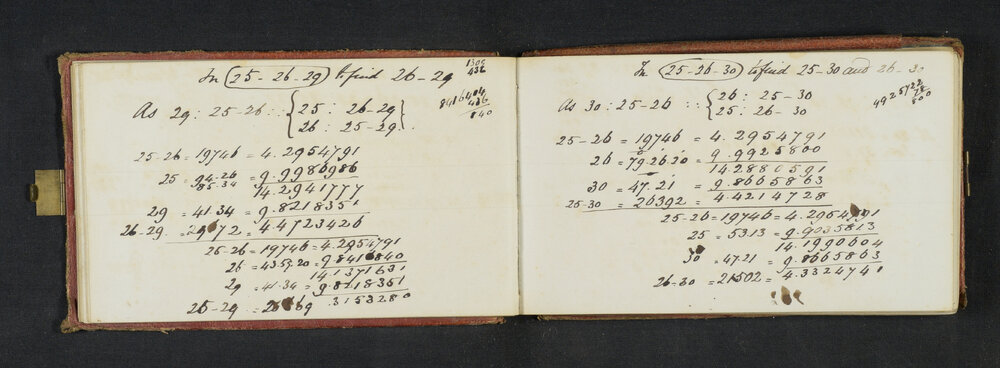 In (25 - 26 - 29) to find 26 - 29
1300
436
8416404
436
840
As 29 : 25 - 26 :: { 25 : 26 - 29
26 : 25 - 29 .
25 - 26 = 19746 = 4.2954791
25 = 94.26 9.9986986
85.34
14.2941777
29 = 41.34 = 9.8218351
26 - 29 = 72 = 4.4723426
25 - 26 = 19746 = 4.2954791
26 = 43.59.20 = 9.8416840
14.1371631
29 = 41.34 = 9.8218351
25 - 29 = 4.3153280
In (25 - 26 - 30) to find 25 - 30 and 26 - 30
4925722
78
800
As 30 : 25 - 26 :: { 26 : 25 - 30
25 : 26 - 30
25 - 26 = 19746 = 4.2954791
26 = 79.26.20 = 9.9925800
14.2880591
30 = 47.21 = 9.8665863
25 - 30 = 26392 = 4.4214728
25 - 26 = 19746 = 4.2954791
25 = 53.13 = 9.9035813
14.1990604
30 = 47.21 = 9.8665863
26 - 30 = 21502 = 4.3324741